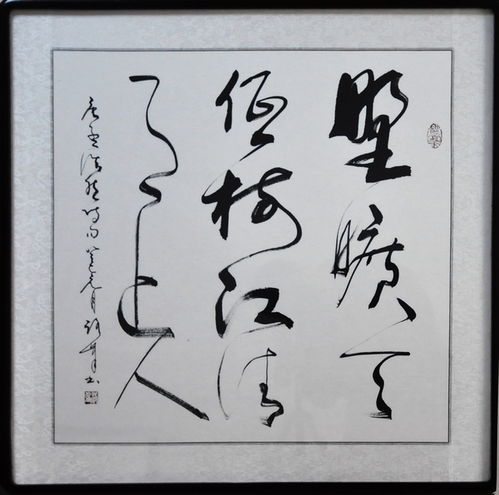 野曠天
低樹江清
月近人
唐孟浩然詩句 月 書